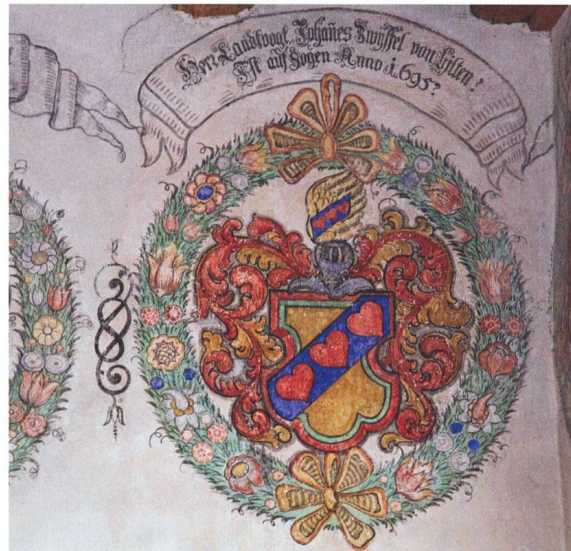 Herr Landtvogt Johañes Zwyffel von Bilten!
Ist auf Zogen Anno 1695?